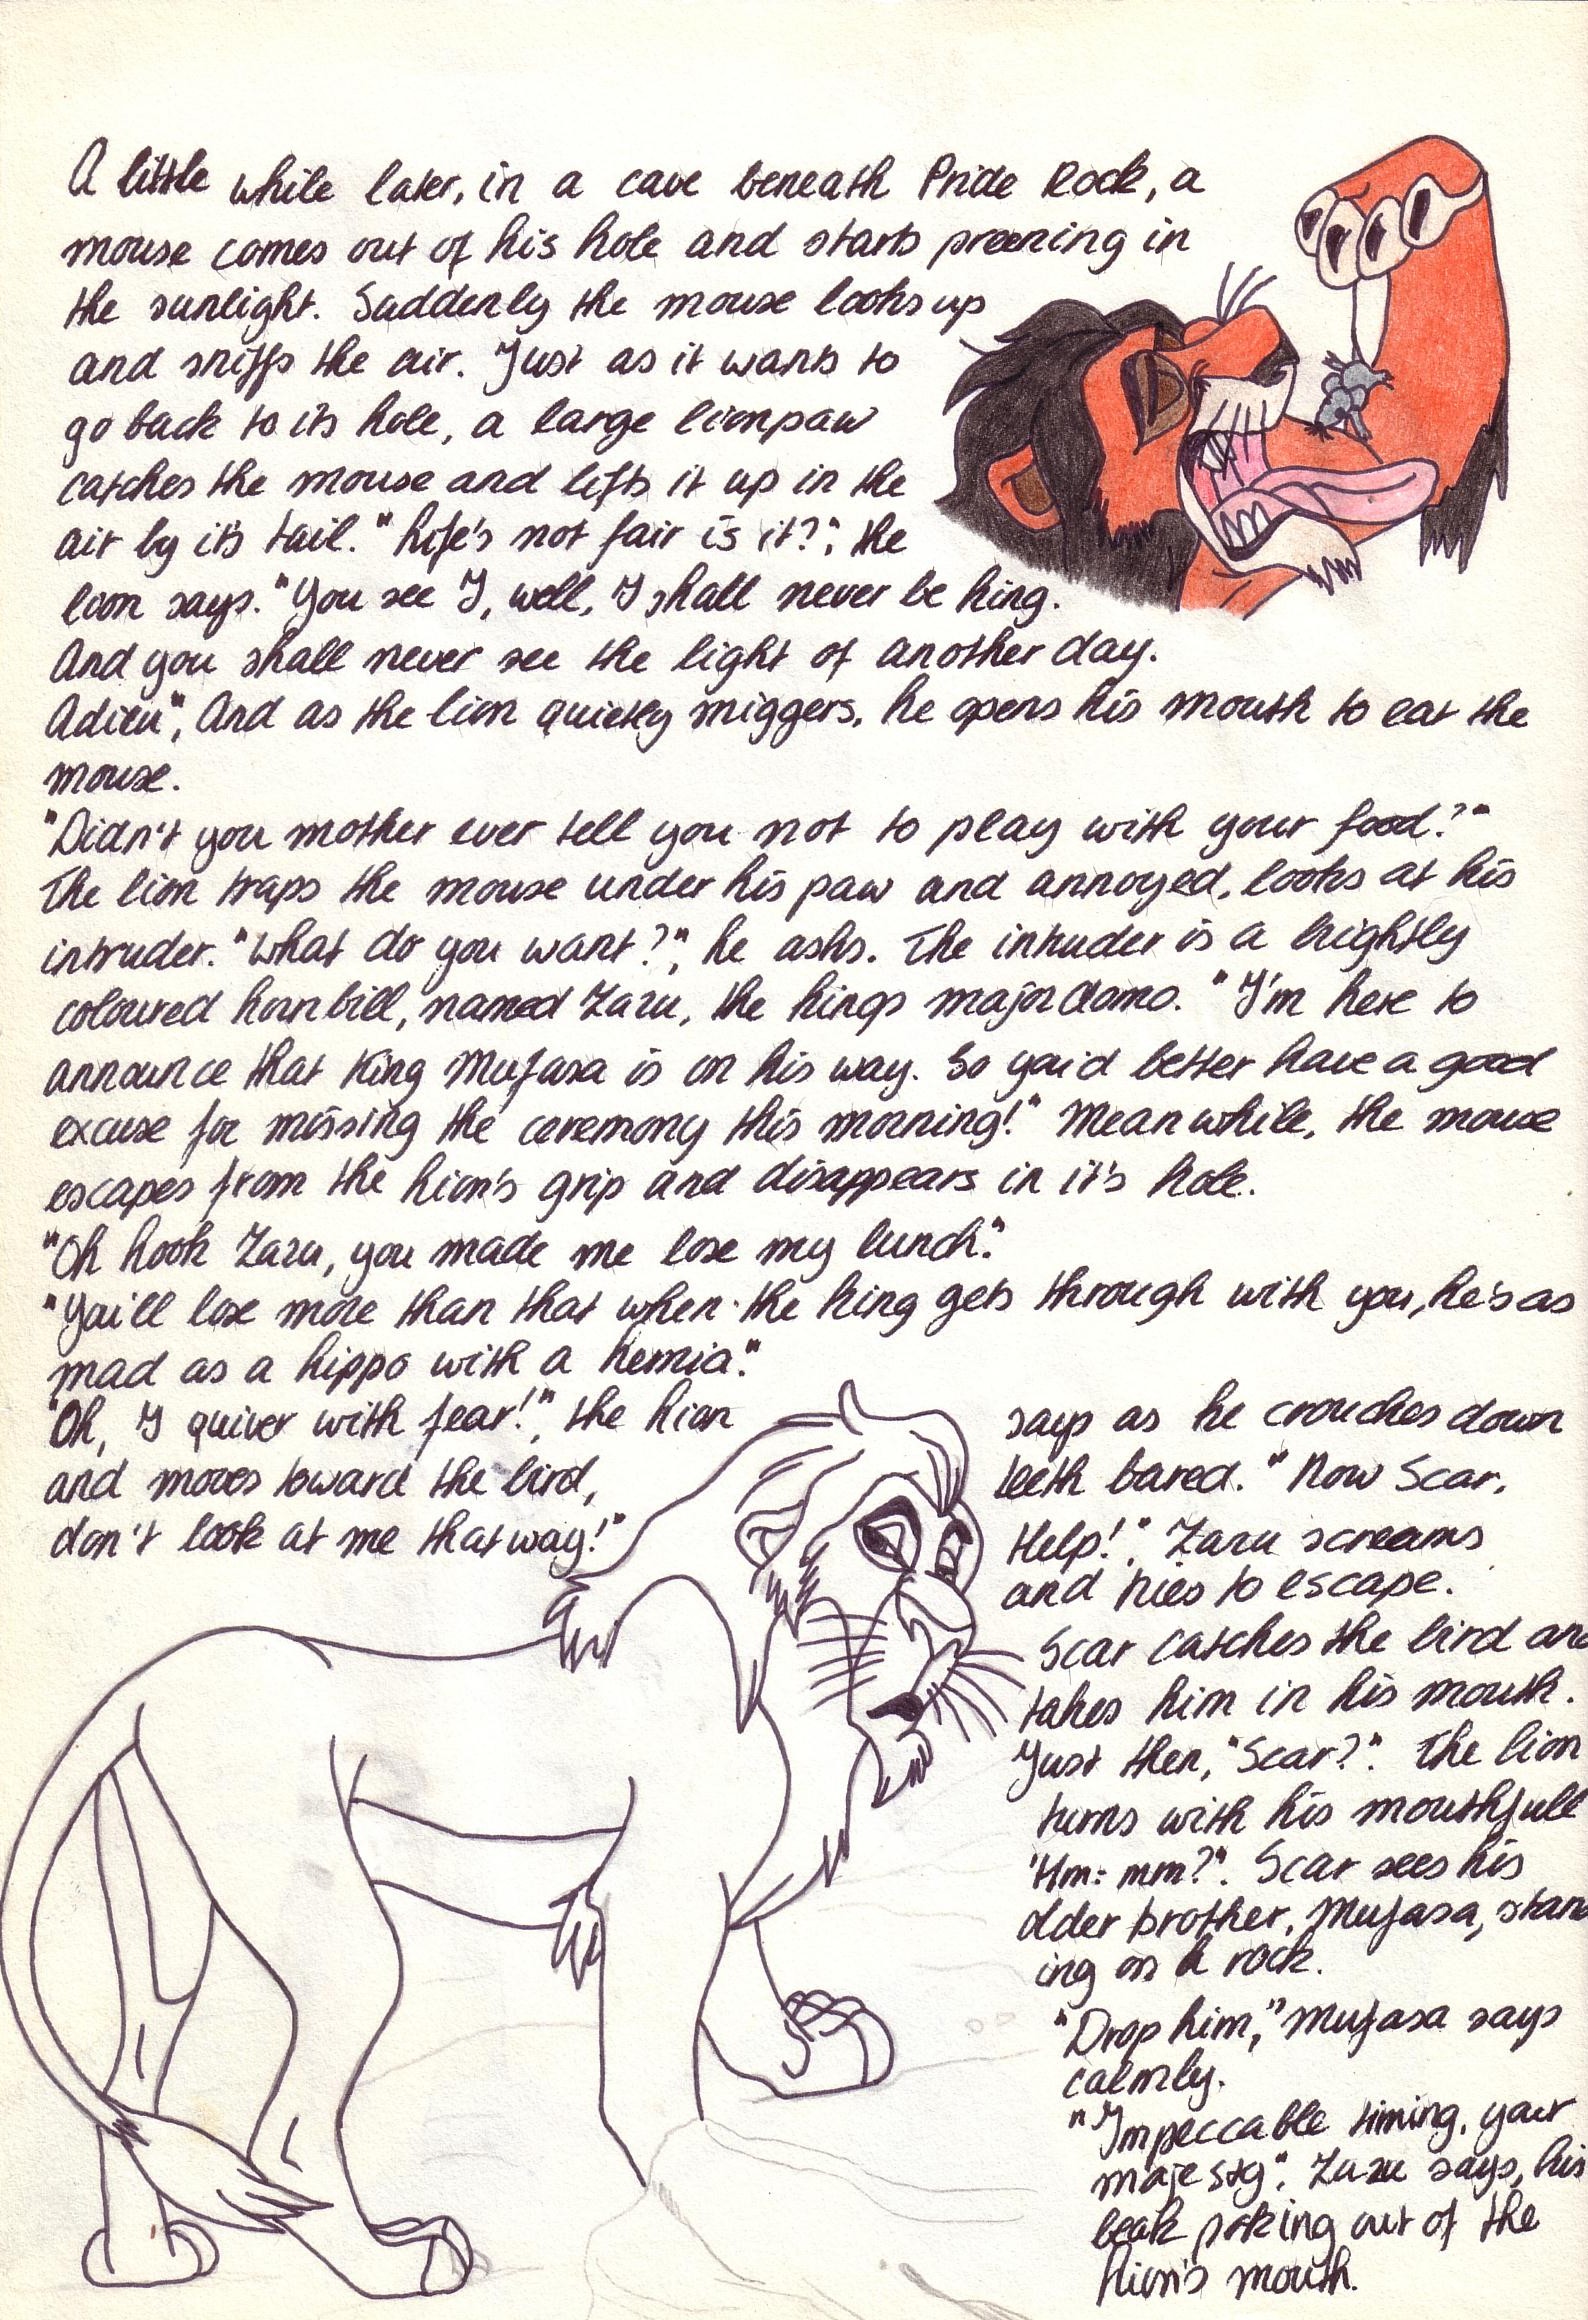 A little while later, in a cave beneath Pride Rock, a
mouse comes out of his hole and starts preening in
the sunlight. Suddenly the mouse looks up
and sniffs the air. Just as it wants to
go back to its hole, a large lionpaw
catches the mouse and lifts it up in the
air by it's tail. "Life's not fair is it?", the
lion says. "You see I, well, I shall never be king.
And you shall never see the light of another day.
Adieu", And as the lion quietly sniggers, he opens his mouth to eat the
mouse.
"Didn't you mother ever tell you not to play with your food?"
The lion traps the mouse under his paw and annoyed, looks at his
intruder. "What do you want?", he asks. The intruder is a brightly
coloured hornbill, named Zazu, the kings major domo. "I'm here to
announce that King Mufasa is on his way. So you'd better have a good
excuse for missing the ceremony this morning!" Meanwhile, the mouse
escapes from the lion's grip and disappears in it's hole.
"Oh look Zazu, you made me lose my lunch."
"You'll lose more than that when the king gets through with you, he's as
mad as a hippo with a hernia."
"Oh, I quiver with fear!", the lion says as he crouches down
and moves toward the bird, teeth bared. "Now Scar,
don't look at me that way!" Help!", Zazu screams
and tries to escape.
Scar catches the bird and
takes him in his mouth.
Just then, "Scar?". The lion
turns with his mouthfull
"Hm-mm?". Scar sees his
older brother, Mufasa, stand
ing on a rock.
"Drop him," Mufasa says
calmly.
"Impeccable timing, your
majesty", Zazu says, his
beak poking out of the
lion's mouth.